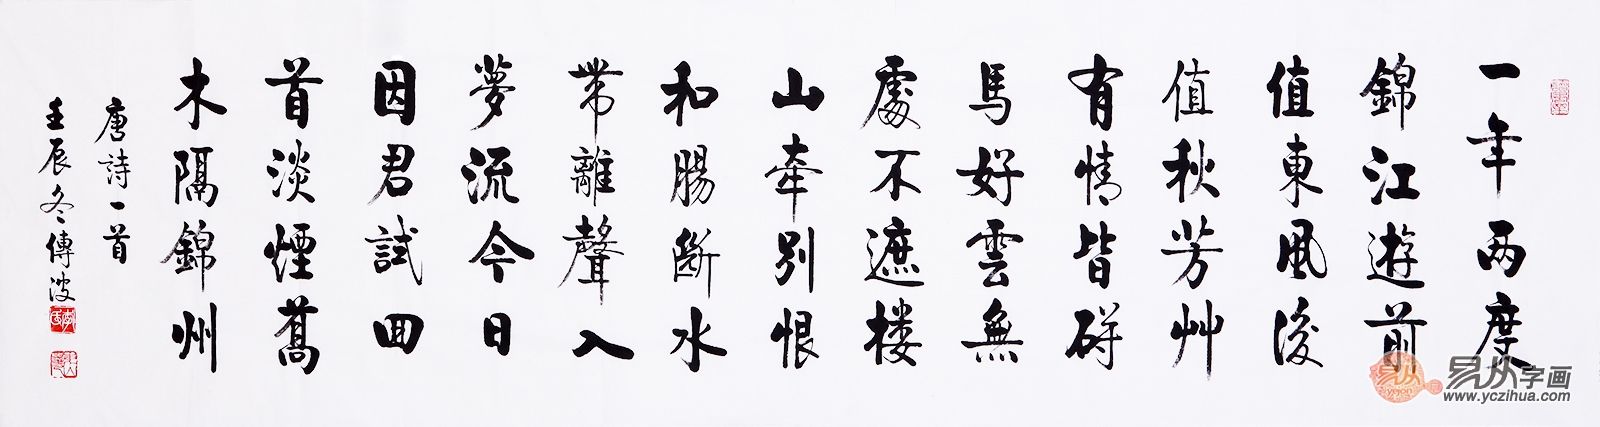 一年两度
錦江遊前
值東風後
值秋芳艸
有情皆碍
馬好雲無
處不遮楼
山牵别恨
和腸断水
帶離聲入
夢流今日
因君試囬
首淡煙喬
木隔錦州
唐詩一首
壬辰冬傳波
易从字画
www.yczihua.com